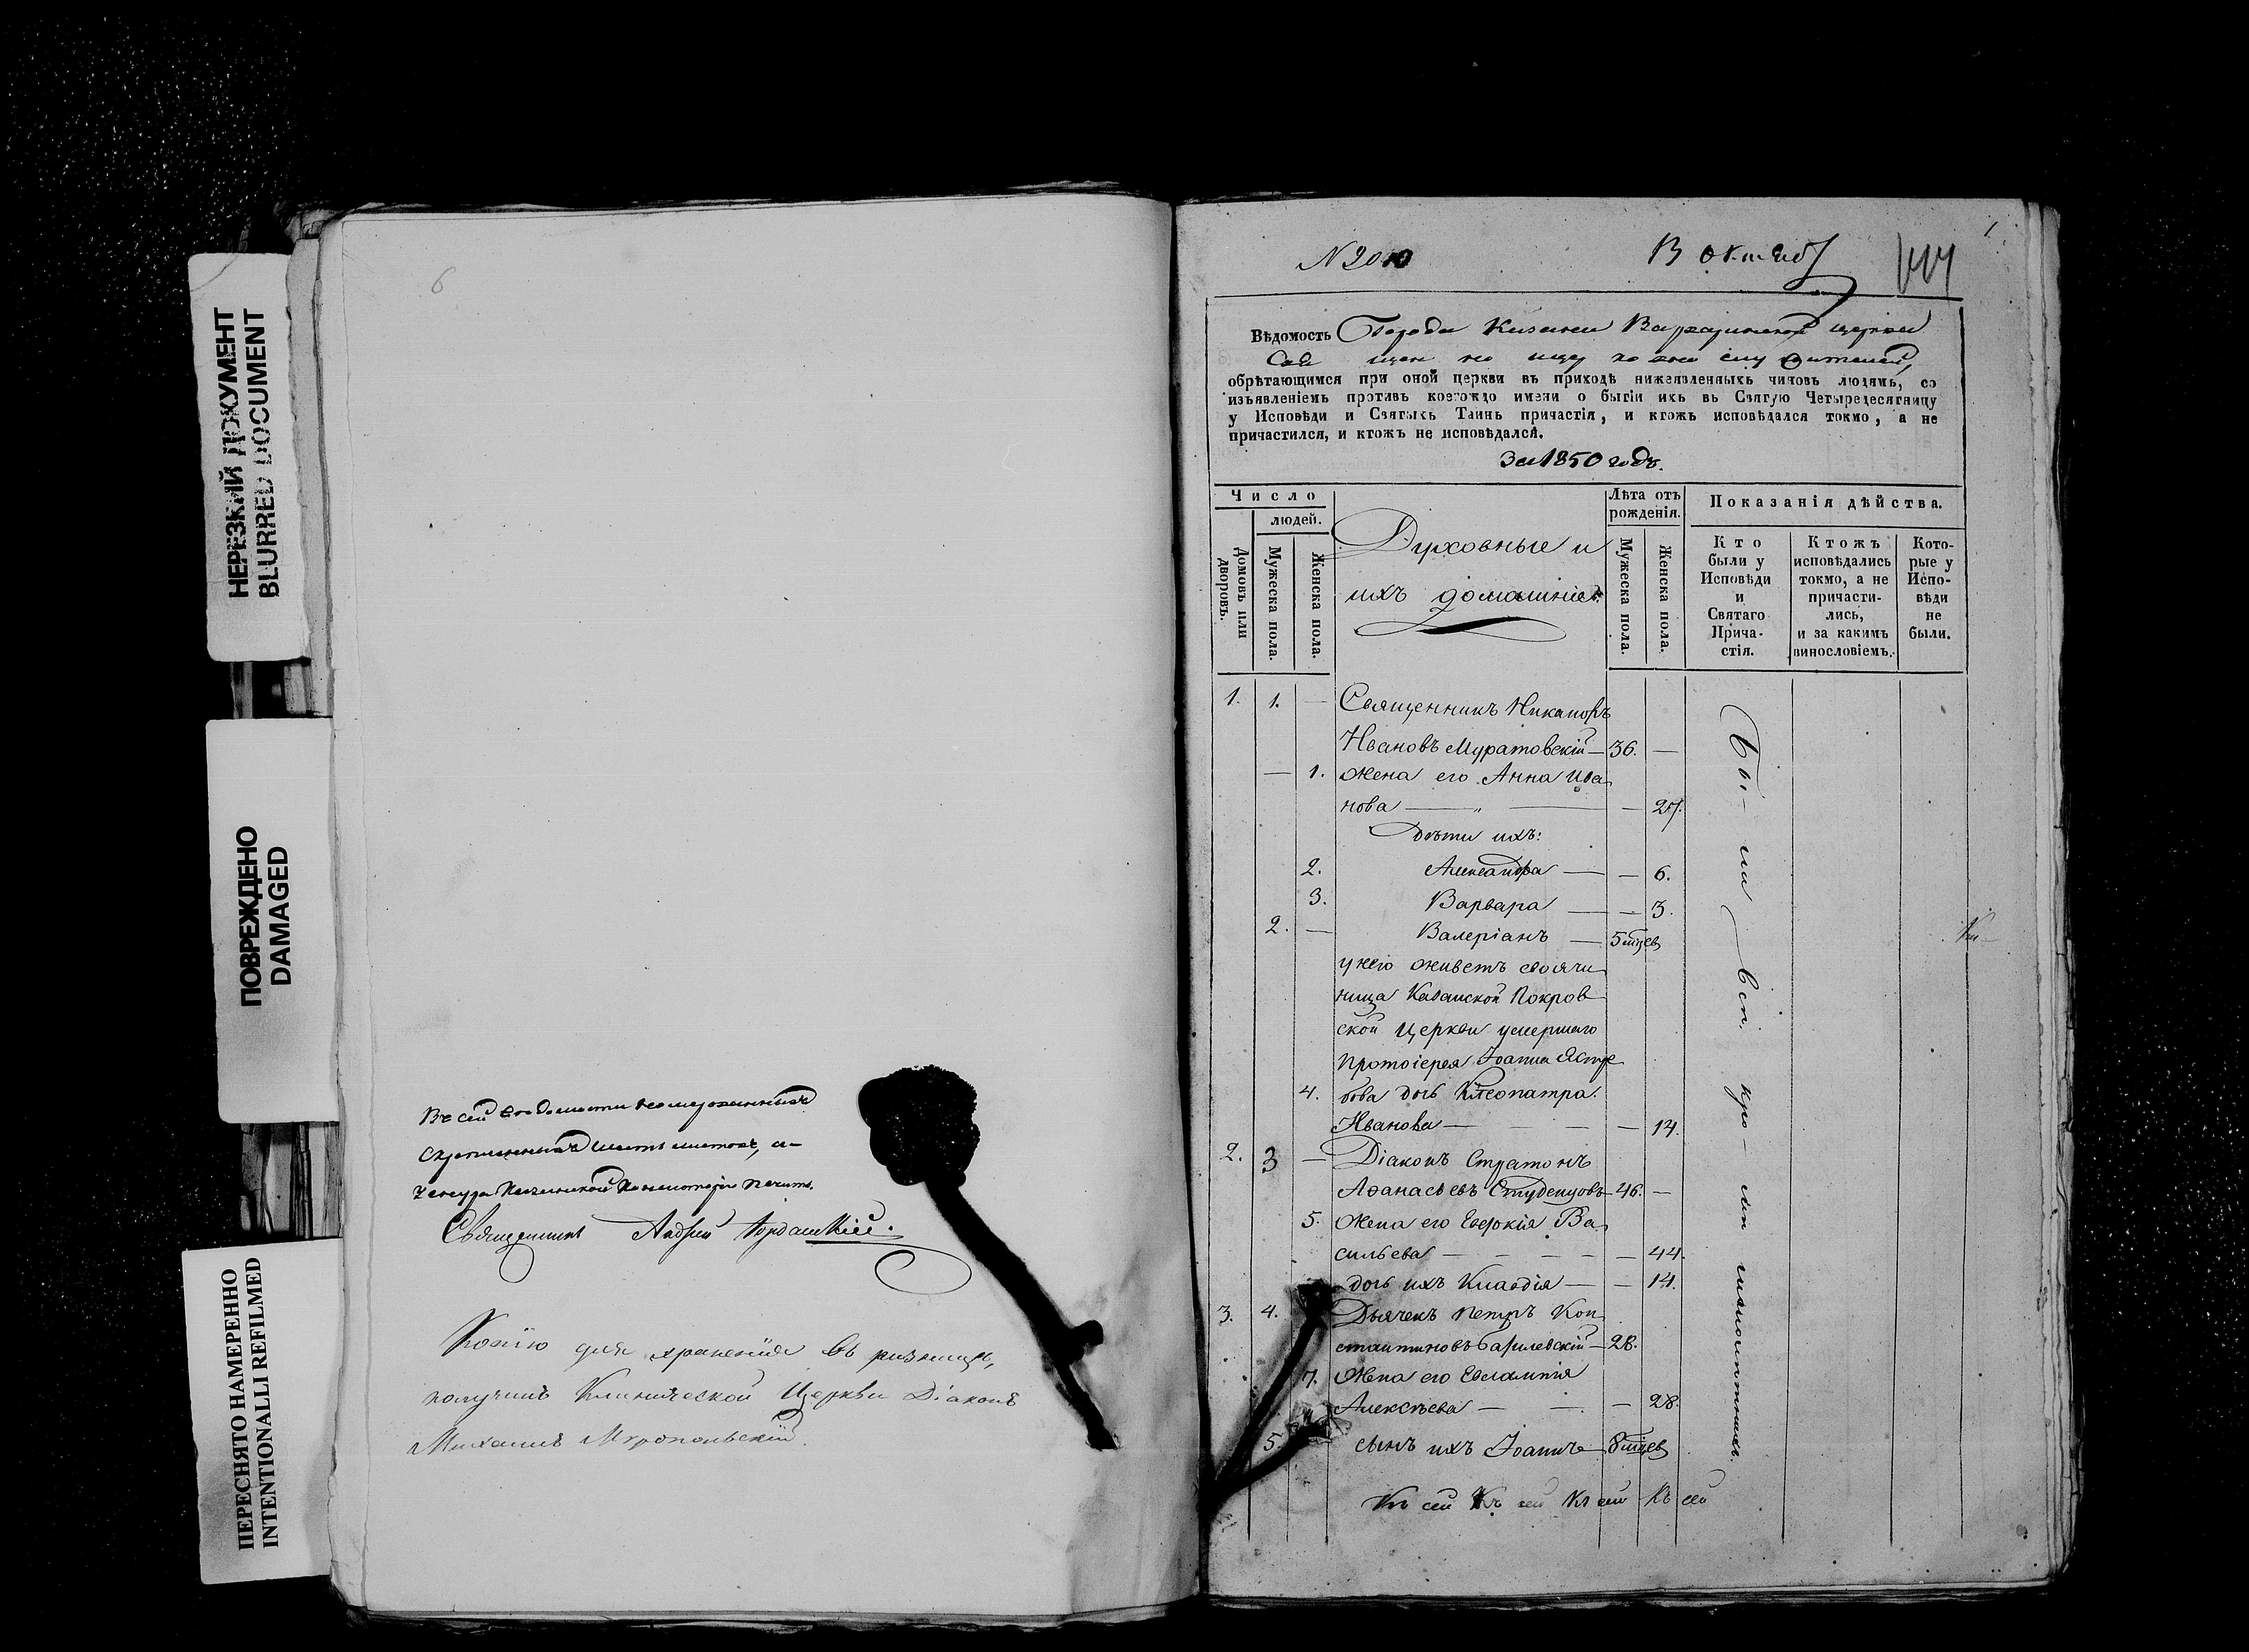 НЕРЕЗКИЙ ДОКУМЕНТ
BLURRED DOCUMENT
ПОВРЕЖДЕНО
DAMAGED
ПЕРЕСНЯТО НАМЕРЕННО
INTENTIONALLI REFILMED
6
Въ сей
листовъ, а
печать.
Священникъ Андрей
Копію для храненія въ ризницѣ,
получилъ Клинической Церкви Діаконъ
Михаилъ
1
Вѣдомость Города Казани Варваринской церкви
обрѣтающимся при оной церкви въ приходѣ нижеявленныхъ чиновъ людямъ, со
изъявленіемъ противъ коегождо имени о бытіи ихъ въ Святую Четыредесятницу
у Исповѣди и Святыхъ Таинъ причастія, и ктожъ исповѣдался токмо, а не
причастился, и ктожъ не исповѣдался.
За 1850 годъ.
Число
людей.
Домовъ или дворовъ.
Мужеска пола.
Женска пола.
Духовные и
ихъ домашніе
Лѣта отъ рожденія.
Мужеска пола.
Женска пола.
Показанія дѣйства.
Кто были у Исповѣди и Святаго Прича-стія.
Ктожъ исповѣдались токмо, а не причасти-лись, и за какимъ винословіемъ.
Кото-рые у Испо-вѣди не были.
1. 1. — Священникъ Никаноръ
Ивановъ Муратовскій — 36. —
— 1. Жена его Анна Ива
нова — — 27.
Дѣти ихъ:
2. Александра — — 6.
3. Варвара — — 3.
2. — Валеріанъ — 5 мцев
у него живетъ своячи
ница Казанской Покров
ской Церкви умершаго
Протоіерея Іоанна Ястре
4. бова дочь Клеопатра
Иванова — — — — 14.
2. 3 — Діаконъ Стратонъ
Аѳанасьевъ Студенцовъ — 46. —
5. Жена его Евдокія Ва
сильева — — — — — 44.
дочь ихъ Клавдія — — 14.
3. 4. Дьячекъ Петръ Кон
стантиновъ — 28.
7. Жена его Евлампія
Алексѣева — — — 28.
5 сынъ ихъ Іоаннъ — 8 мцев
Бы-ли всѣ, кро-мѣ малолѣтнихъ.
Къ сей Къ сей Къ сей Къ сей